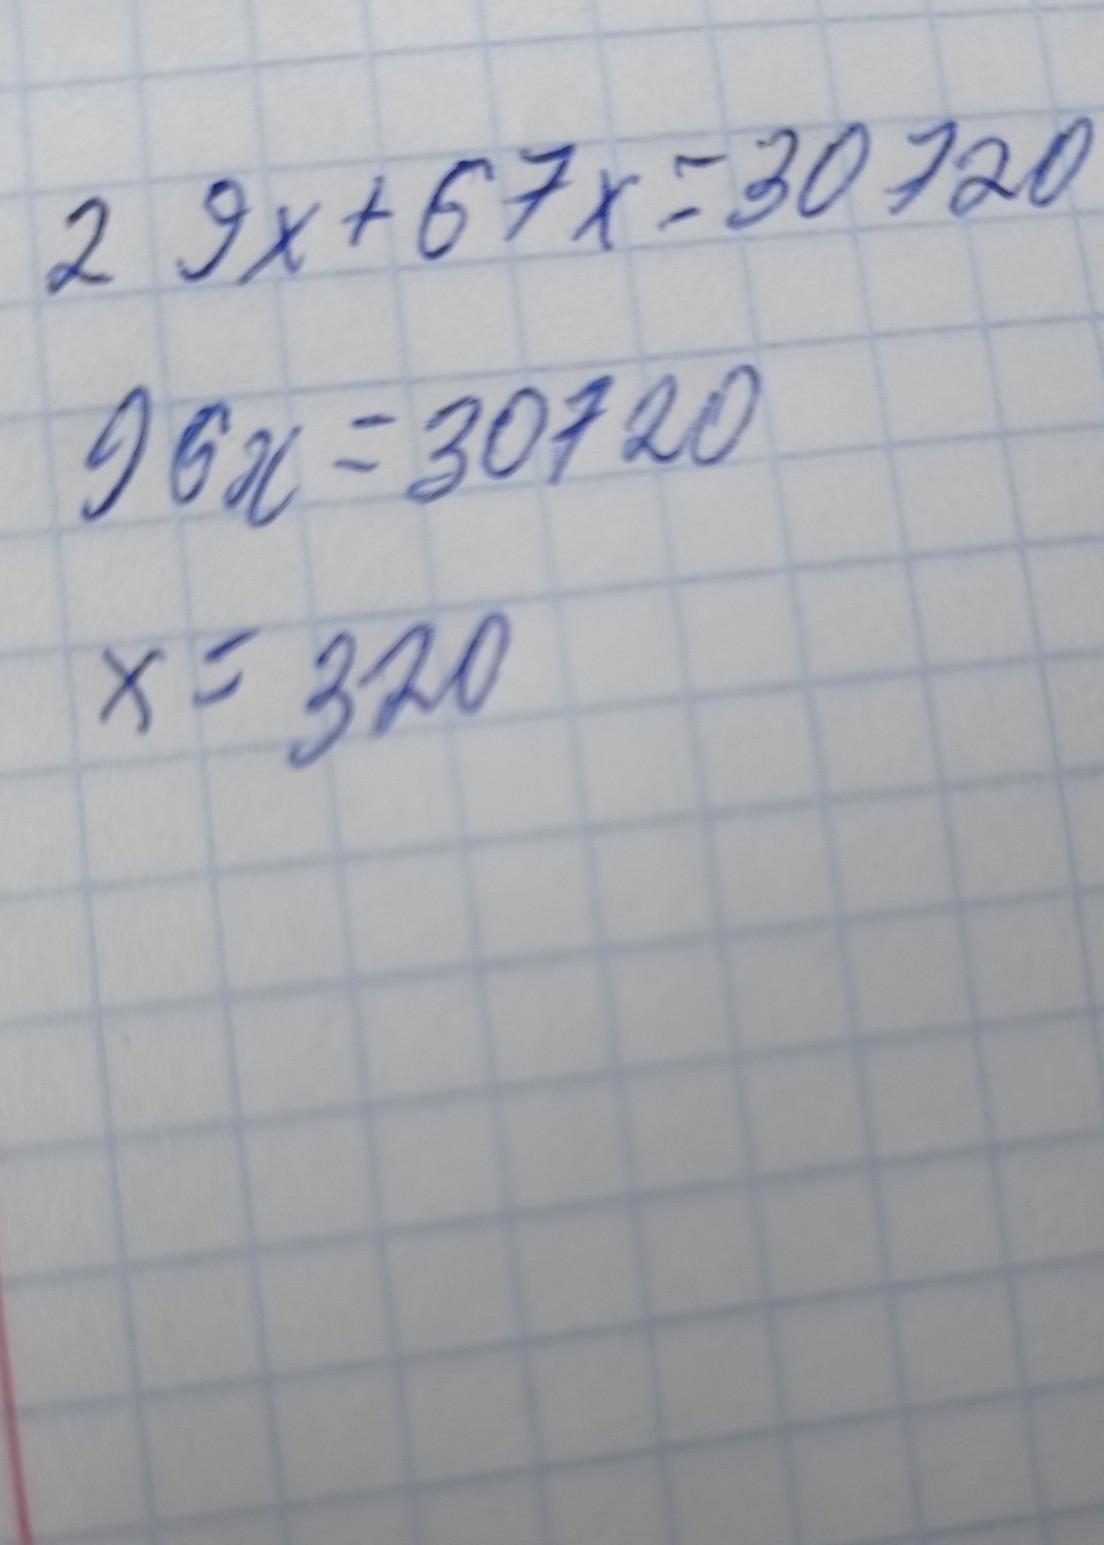 29x+67x=30720
96x=30720
x=320